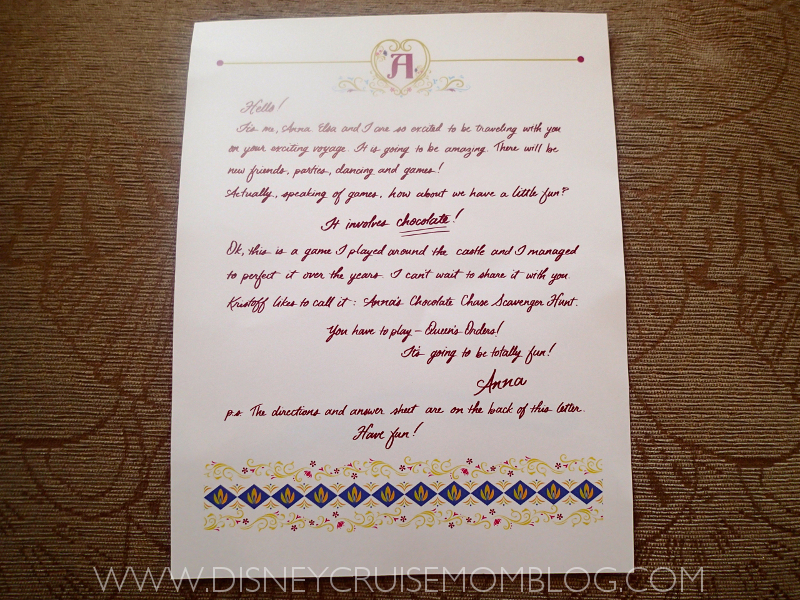 A
Hello!
It's me, Anna. Elsa and I are so excited to be traveling with you
on your exciting voyage. It is going to be amazing. There will be
new friends, parties, dancing and games!
Actually, speaking of games, how about we have a little fun?
It involves chocolate!
Ok, this is a game I played around the castle and I managed
to perfect it over the years. I can't wait to share it with you.
Kristoff likes to call it: Anna's Chocolate Chase Scavenger Hunt.
You have to play - Queen's Orders!
It's going to be totally fun!
Anna
p.s. The directions and answer sheet are on the back of this letter.
Have fun!
WWW.DISNEYCRUISEMOMBLOG.COM